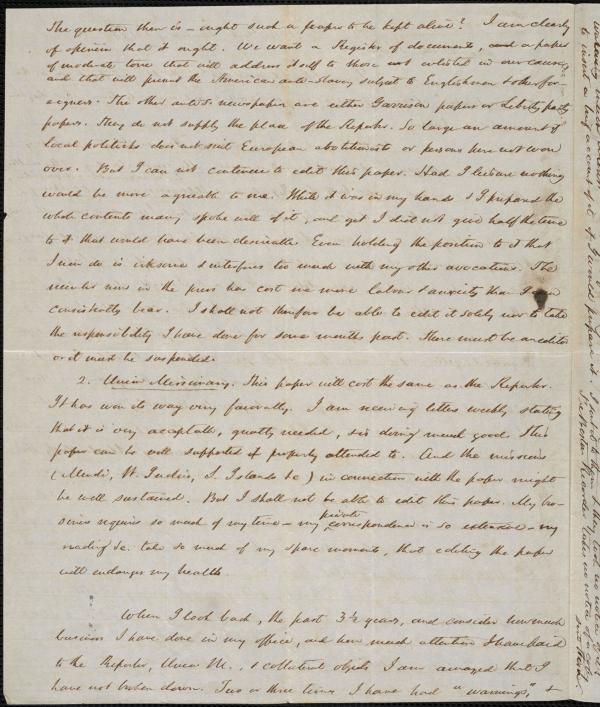 The question then is — ought such a paper to be kept alive? I am clearly
of opinion that it ought. We want a Register of documents, and a paper
of moderate tone that will address itself to those not enlisted in our cause,
and that will present the American anti-slavery subject to Englishmen & other for-
eigners. The other anti S. newspapers are either Garrison papers or Liberty party
papers. They do not supply the place of the Reporter. So large an amount of
local politicks does not suit European abolitionists or persons here not won
over. But I can not continue to edit this paper. Had I leisure nothing
would be more agreeable to me. While it was in my hands & I prepared the
whole contents many spoke well of it, and yet I did not give half the time
to it that would have been desirable. Even holding the position to it that
I now do is irksome & interferes too much with my other avocations. The
number now in the press has cost me more labour & anxiety than I can
consistently bear. I shall not therefore be able to edit it solely nor to take
the responsibility I have done for some months past. There must be an editor
or it must be suspended.
2. Union Missionary. This paper will cost the same as the Reporter.
It has won its way very favorably. I am receiving letters weekly stating
that it is very acceptable, greatly needed, & is doing much good. This
paper can be well supported if properly attended to. And the missions
(Mendi, W. Indies, S. Islands &c) in connection with the paper might
be well sustained. But I shall not be able to edit this paper. My bu-
siness requires so much of my time — my private correspondence is so extensive — my
reading &c. take so much of my spare moments, that editing the paper
will endanger my health.
When I look back, the past 3½ years, and consider how much
business I have done in my office, and how much attention I have paid
to the Reporter, Union M., & collateral objects, I am amazed that I
have not broken down. Two or three times I have had "warnings", &
to insert a long account of it if I would prepare it. I sent it to them & they took no notice of it.
The Boston Recorder takes no notice of